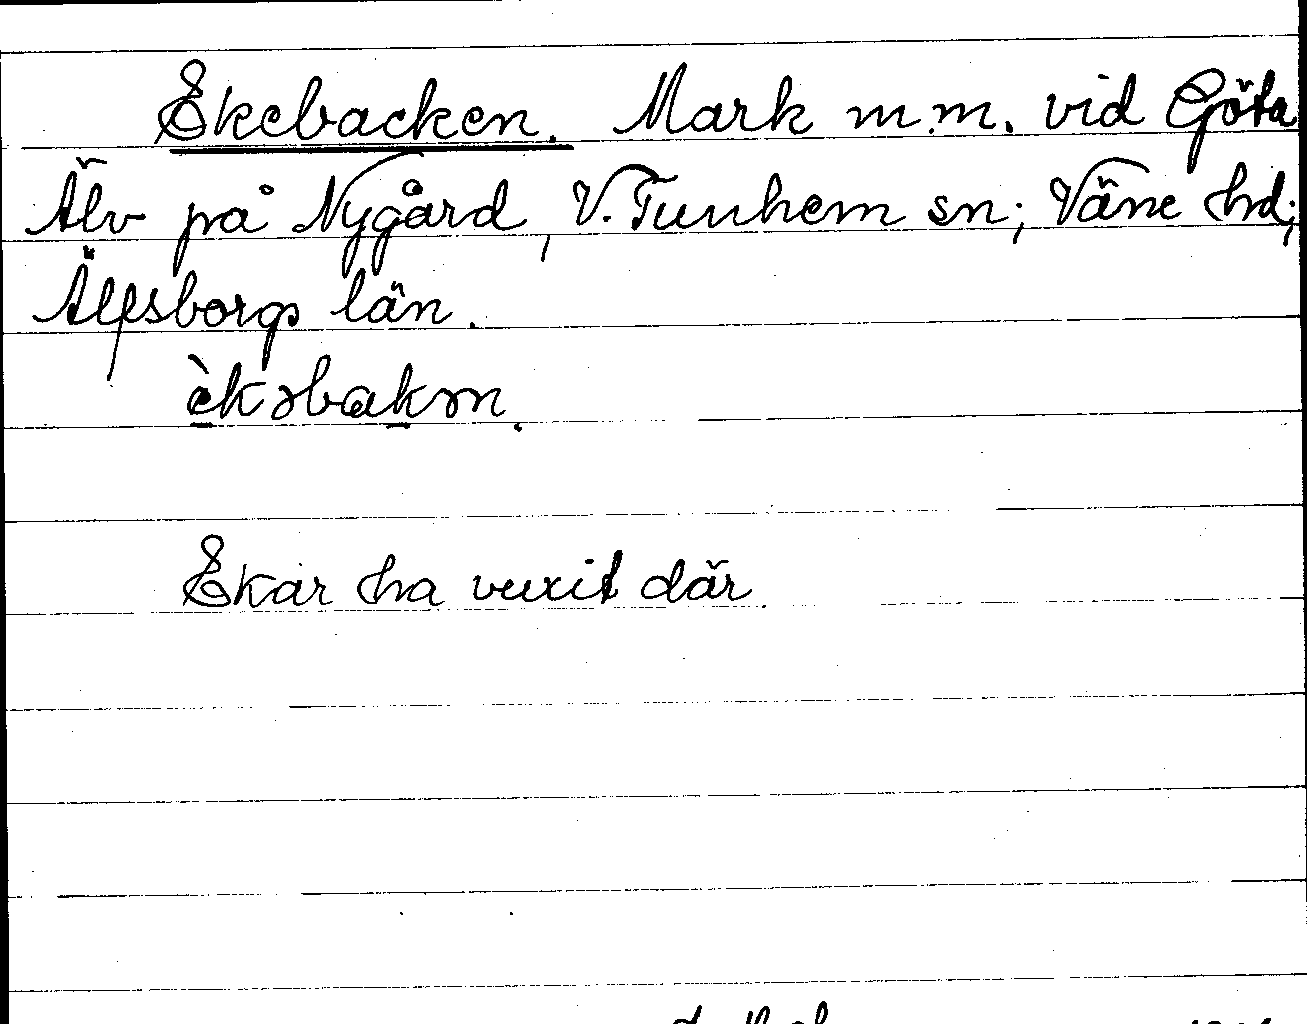 Ekebacken. Mark m.m. vid Göta
Älv på Nygård, V. Tunhem sn; Väne hd;
Älfsborgs län.
èkəbakən.
Ekar ha vuxit där.